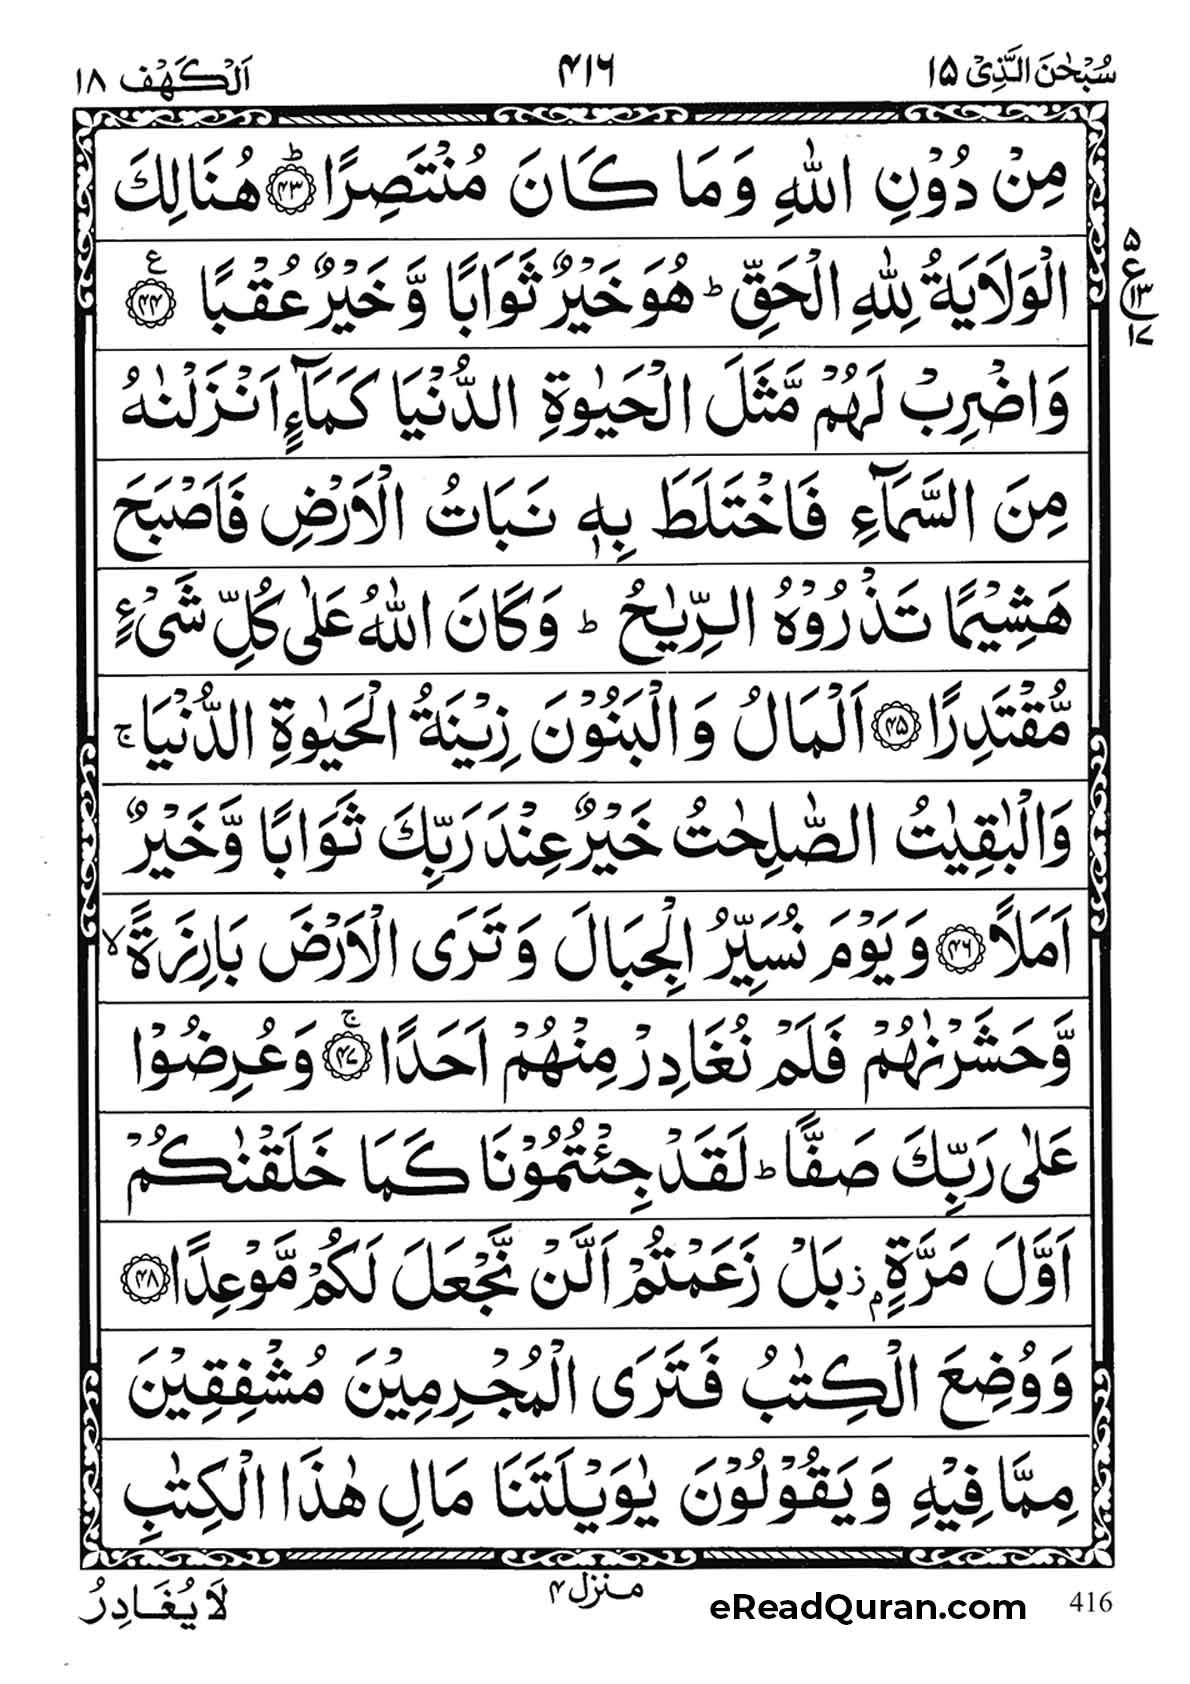 سُبْحٰنَ الَّذِیْ ۱۵
۴۱۶
اَلْكَهْف ۱۸
مِنْ دُوْنِ اللّٰهِ وَمَا كَانَ مُنْتَصِرًا ؕ﴿۴۳﴾ هُنَالِكَ
۵
ع
۱۳
۱۷
الْوَلَایَةُ لِلّٰهِ الْحَقِّ ؕ هُوَ خَیْرٌ ثَوَابًا وَّ خَیْرٌ عُقْبًا ﴿۴۴﴾ ع
وَاضْرِبْ لَهُمْ مَّثَلَ الْحَیٰوةِ الدُّنْیَا كَمَآءٍ اَنْزَلْنٰهُ
مِنَ السَّمَآءِ فَاخْتَلَطَ بِهٖ نَبَاتُ الْاَرْضِ فَاَصْبَحَ
هَشِیْمًا تَذْرُوْهُ الرِّیٰحُ ؕ وَكَانَ اللّٰهُ عَلٰی كُلِّ شَیْءٍ
مُّقْتَدِرًا ﴿۴۵﴾ اَلْمَالُ وَالْبَنُوْنَ زِیْنَةُ الْحَیٰوةِ الدُّنْیَا ۚ
وَالْبٰقِیٰتُ الصّٰلِحٰتُ خَیْرٌ عِنْدَ رَبِّكَ ثَوَابًا وَّخَیْرٌ
اَمَلًا ﴿۴۶﴾ وَیَوْمَ نُسَیِّرُ الْجِبَالَ وَتَرَی الْاَرْضَ بَارِزَةً ۙ
وَّحَشَرْنٰهُمْ فَلَمْ نُغَادِرْ مِنْهُمْ اَحَدًا ۚ﴿۴۷﴾ وَعُرِضُوْا
عَلٰی رَبِّكَ صَفًّا ؕ لَقَدْ جِئْتُمُوْنَا كَمَا خَلَقْنٰكُمْ
اَوَّلَ مَرَّةٍۭ ز بَلْ زَعَمْتُمْ اَلَّنْ نَّجْعَلَ لَكُمْ مَّوْعِدًا ﴿۴۸﴾
وَوُضِعَ الْكِتٰبُ فَتَرَی الْمُجْرِمِیْنَ مُشْفِقِیْنَ
مِمَّا فِیْهِ وَیَقُوْلُوْنَ یٰوَیْلَتَنَا مَالِ هٰذَا الْكِتٰبِ
416
eReadQuran.com
منزل ۴
لَا یُغَادِرُ